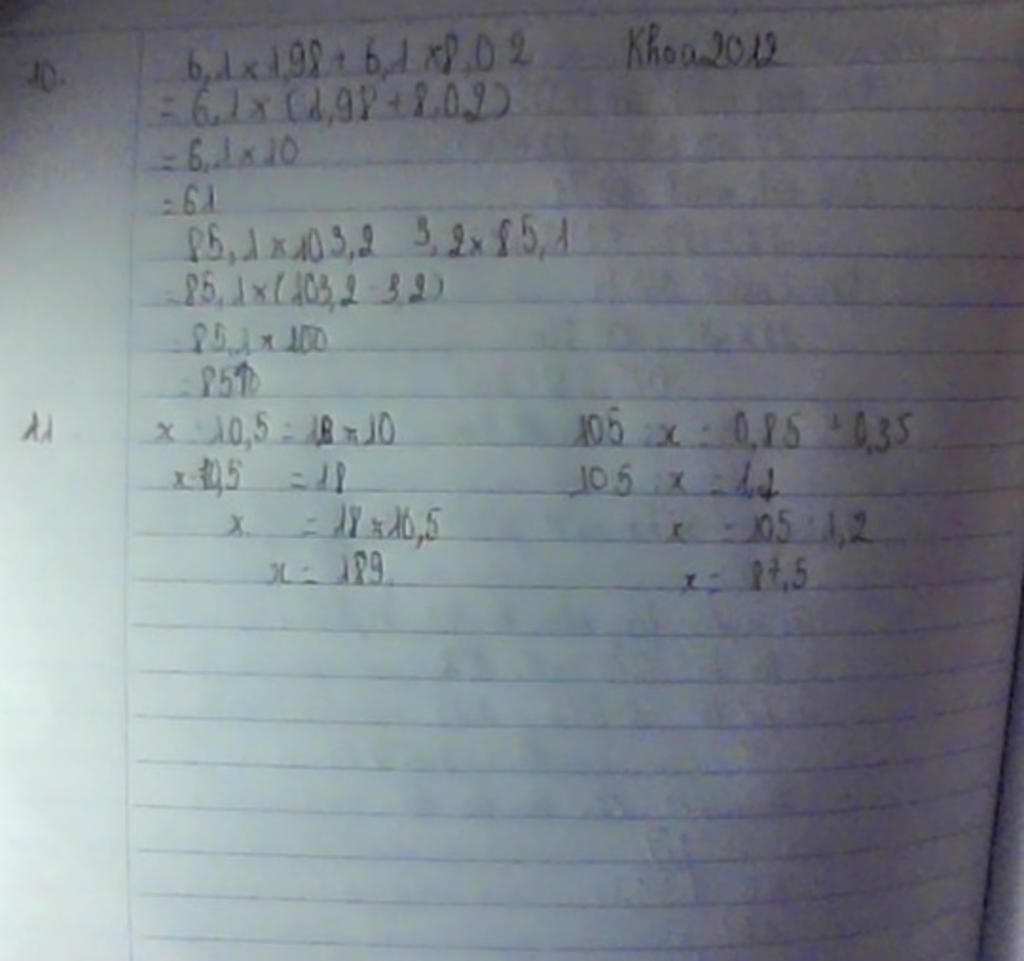 10. 6,1 × 1,98 + 6,1 × 8,02 Khoa2012
= 6,1 × (1,98 + 8,02)
= 6,1 × 10
= 61
85,1 × 103,2 3,2 × 85,1
= 85,1 × (103,2 - 3,2)
85,1 × 100
= 8510
11 x : 10,5 = 18 × 10 105 : x = 0,85 + 0,35
x : 10,5 = 18 105 : x = 1,2
x = 18 × 10,5 x = 105 : 1,2
x = 189 x = 87,5